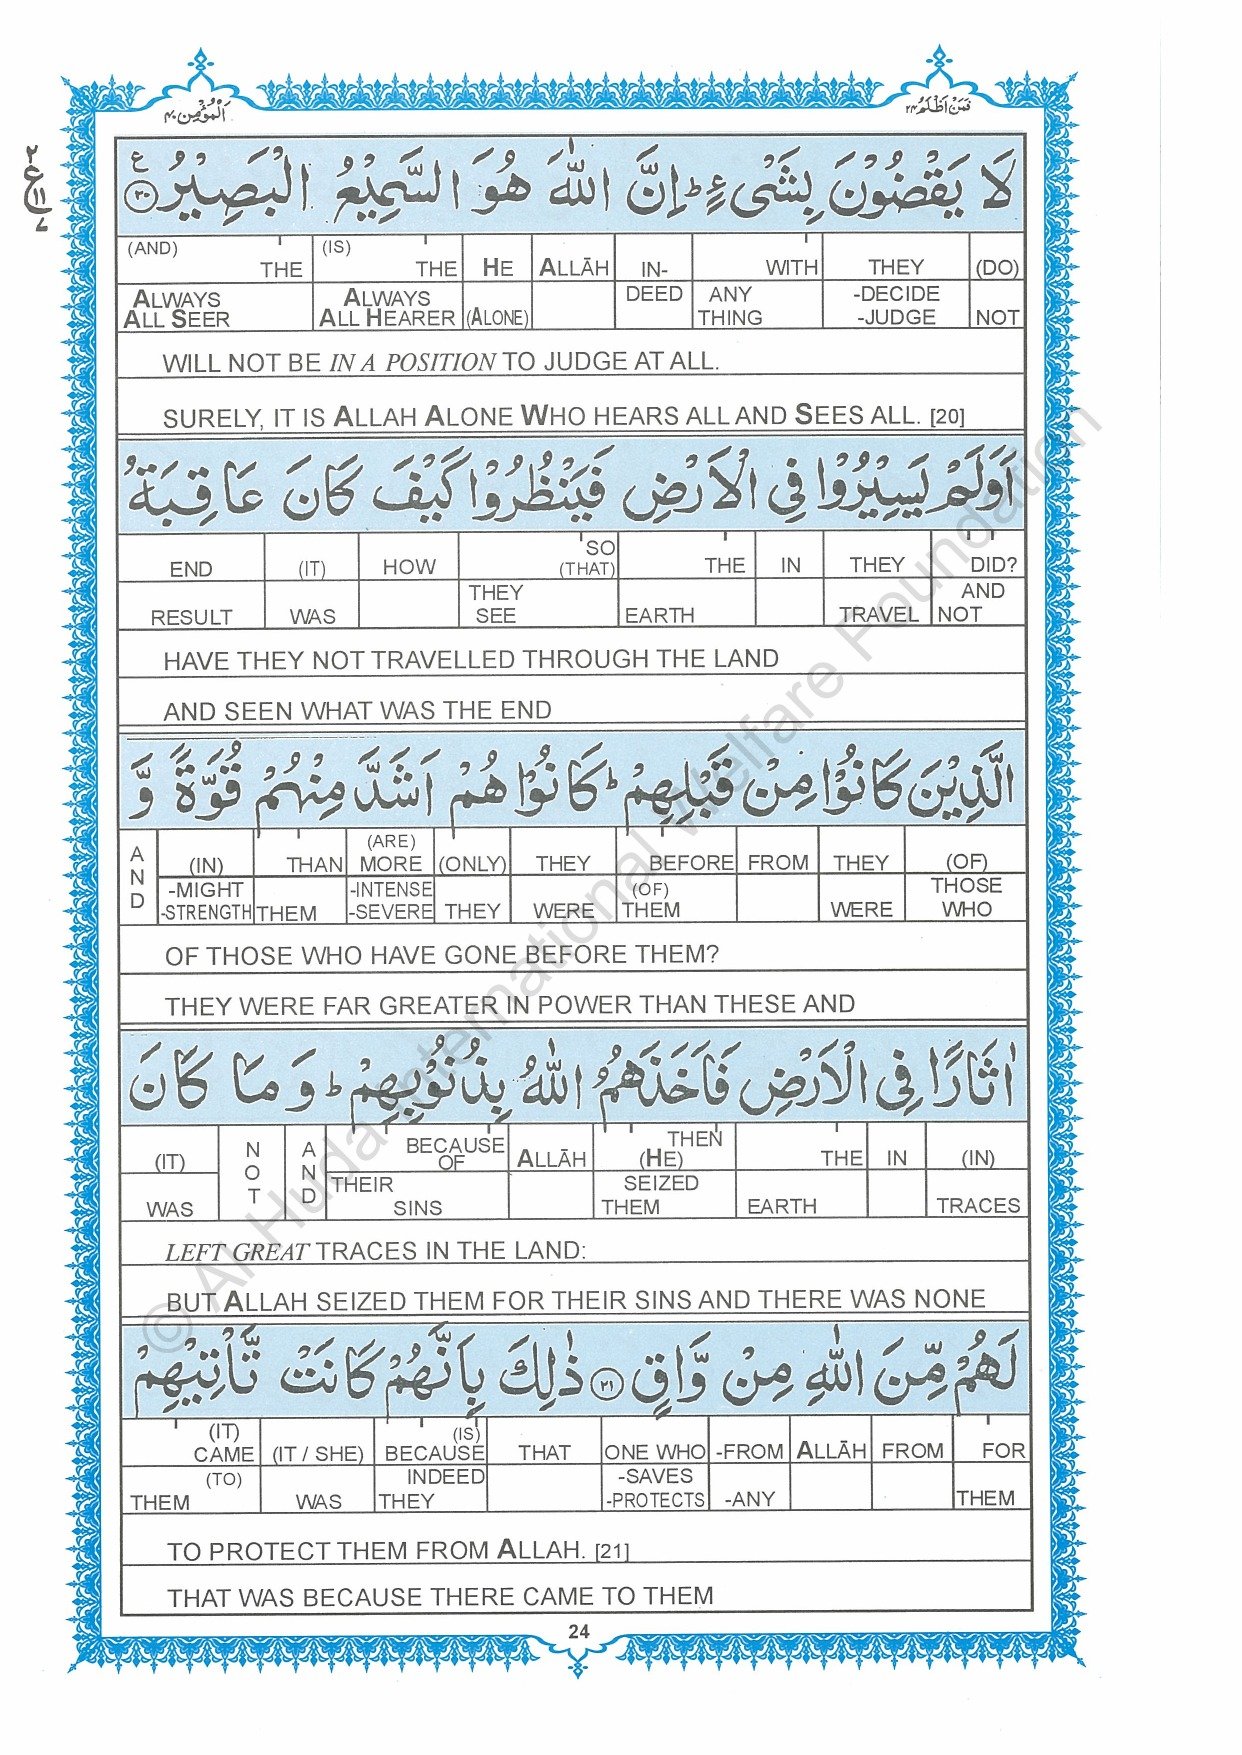 اَلْمُؤْمِن ٤٠
فَمَنْ اَظْلَمُ ٢٤
٢
ع
١١
٧
لَا يَقْضُوْنَ بِشَىْءٍ ؕ اِنَّ اللّٰهَ هُوَ السَّمِيْعُ الْبَصِيْرُ ٢٠ ع
(AND) THE (IS) THE HE ALLĀH IN- WITH THEY (DO)
ALWAYS ALWAYS DEED ANY -DECIDE
ALL SEER ALL HEARER (ALONE) THING -JUDGE NOT
WILL NOT BE IN A POSITION TO JUDGE AT ALL.
SURELY, IT IS ALLAH ALONE WHO HEARS ALL AND SEES ALL. [20]
اَوَلَمْ يَسِيْرُوْا فِى الْاَرْضِ فَيَنْظُرُوْا كَيْفَ كَانَ عَاقِبَةُ
END (IT) HOW SO (THAT) THE IN THEY DID?
RESULT WAS THEY SEE EARTH TRAVEL AND NOT
HAVE THEY NOT TRAVELLED THROUGH THE LAND
AND SEEN WHAT WAS THE END
الَّذِيْنَ كَانُوْا مِنْ قَبْلِهِمْ ؕ كَانُوْا هُمْ اَشَدَّ مِنْهُمْ قُوَّةً وَّ
AND (IN) THAN (ARE) MORE (ONLY) THEY BEFORE FROM THEY (OF)
-MIGHT -STRENGTH THEM -INTENSE -SEVERE THEY WERE (OF) THEM WERE THOSE WHO
OF THOSE WHO HAVE GONE BEFORE THEM?
THEY WERE FAR GREATER IN POWER THAN THESE AND
اٰثَارًا فِى الْاَرْضِ فَاَخَذَهُمُ اللّٰهُ بِذُنُوْبِهِمْ ؕ وَمَا كَانَ
(IT) NOT AND BECAUSE OF ALLĀH THEN (HE) THE IN (IN)
WAS THEIR SINS SEIZED THEM EARTH TRACES
LEFT GREAT TRACES IN THE LAND:
BUT ALLAH SEIZED THEM FOR THEIR SINS AND THERE WAS NONE
لَهُمْ مِّنَ اللّٰهِ مِنْ وَّاقٍ ٢١ ذٰلِكَ بِاَنَّهُمْ كَانَتْ تَّاْتِيْهِمْ
(IT) CAME (IT / SHE) (IS) BECAUSE THAT ONE WHO -FROM ALLĀH FROM FOR
(TO) THEM WAS INDEED THEY -SAVES -PROTECTS -ANY THEM
TO PROTECT THEM FROM ALLAH. [21]
THAT WAS BECAUSE THERE CAME TO THEM
24
© Al Huda International Welfare Foundation